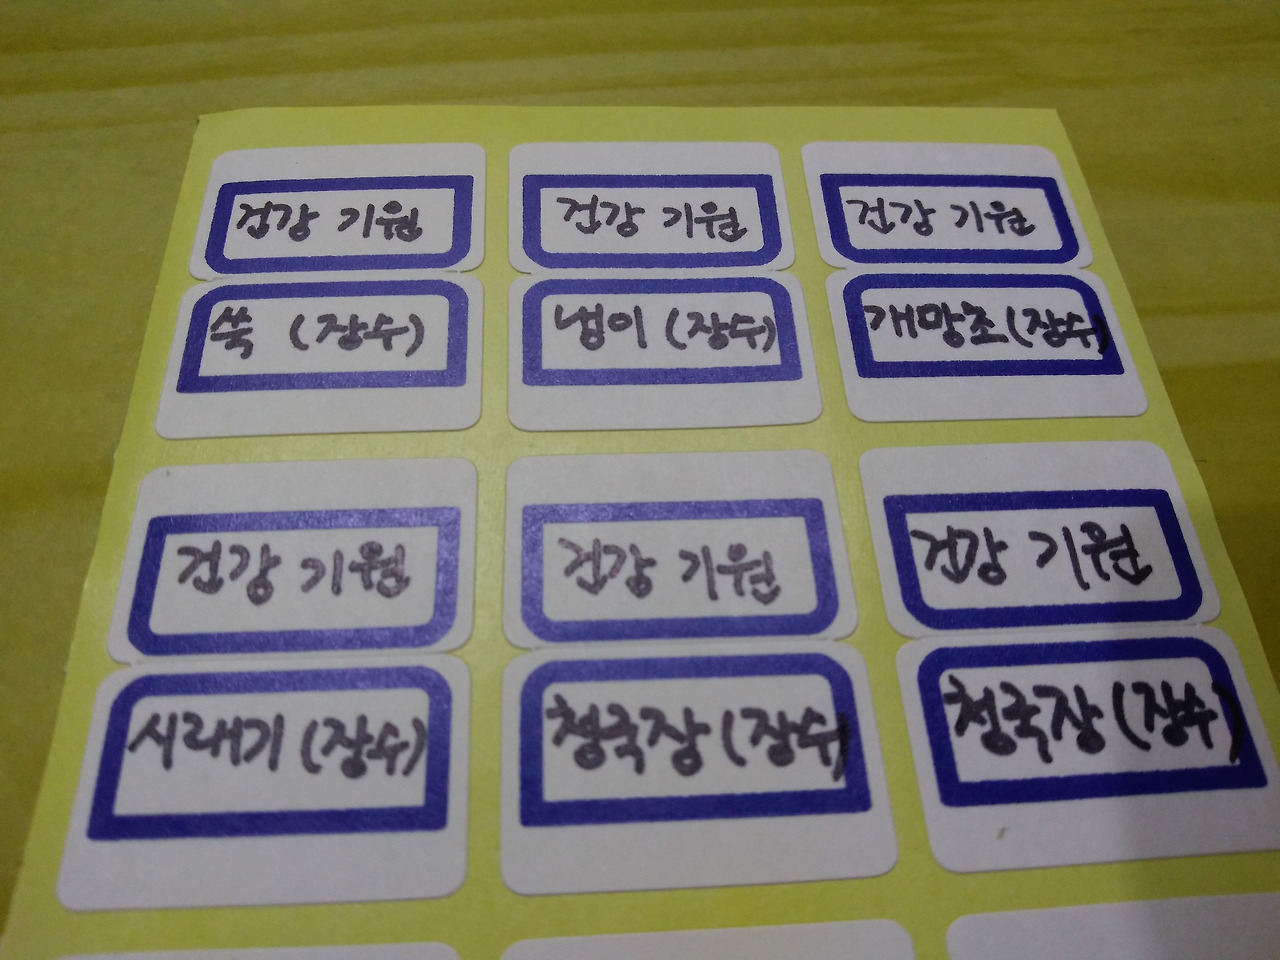 건강 기원
쑥 (장수)
건강 기원
냉이 (장수)
건강 기원
개망초 (장수)
건강 기원
시래기 (장수)
건강 기원
청국장 (장수)
건강 기원
청국장 (장수)